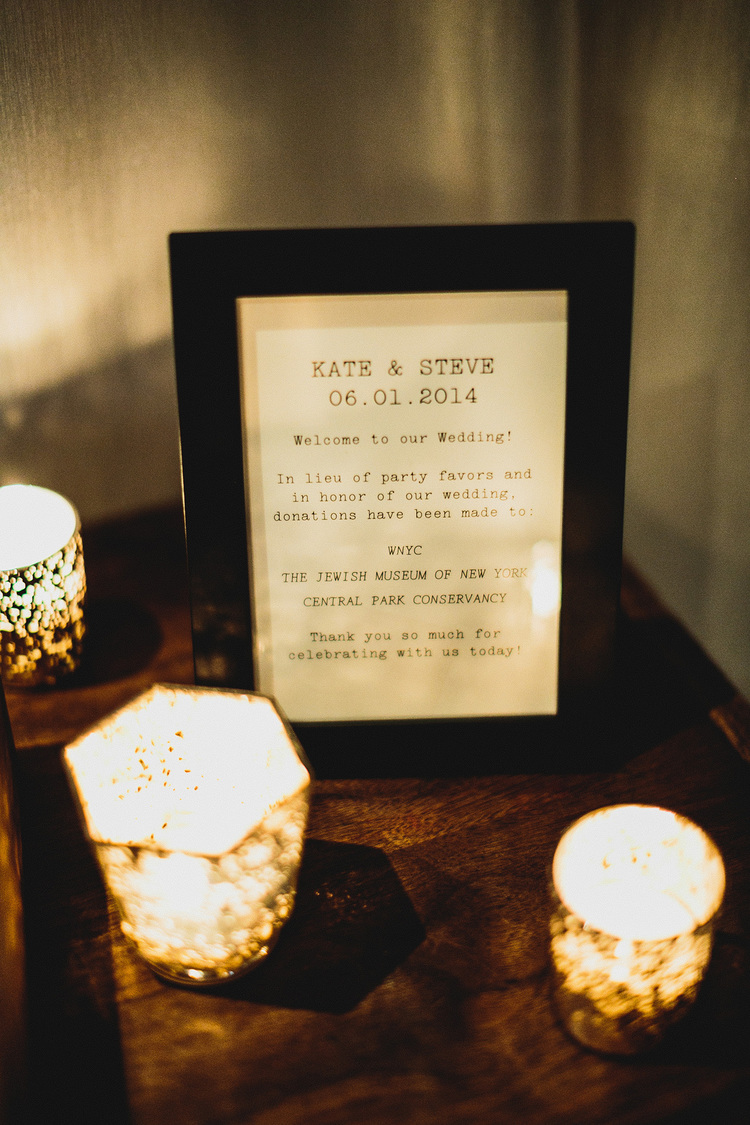 KATE & STEVE
06.01.2014
Welcome to our Wedding!
In lieu of party favors and
in honor of our wedding,
donations have been made to:
WNYC
THE JEWISH MUSEUM OF NEW YORK
CENTRAL PARK CONSERVANCY
Thank you so much for
celebrating with us today!